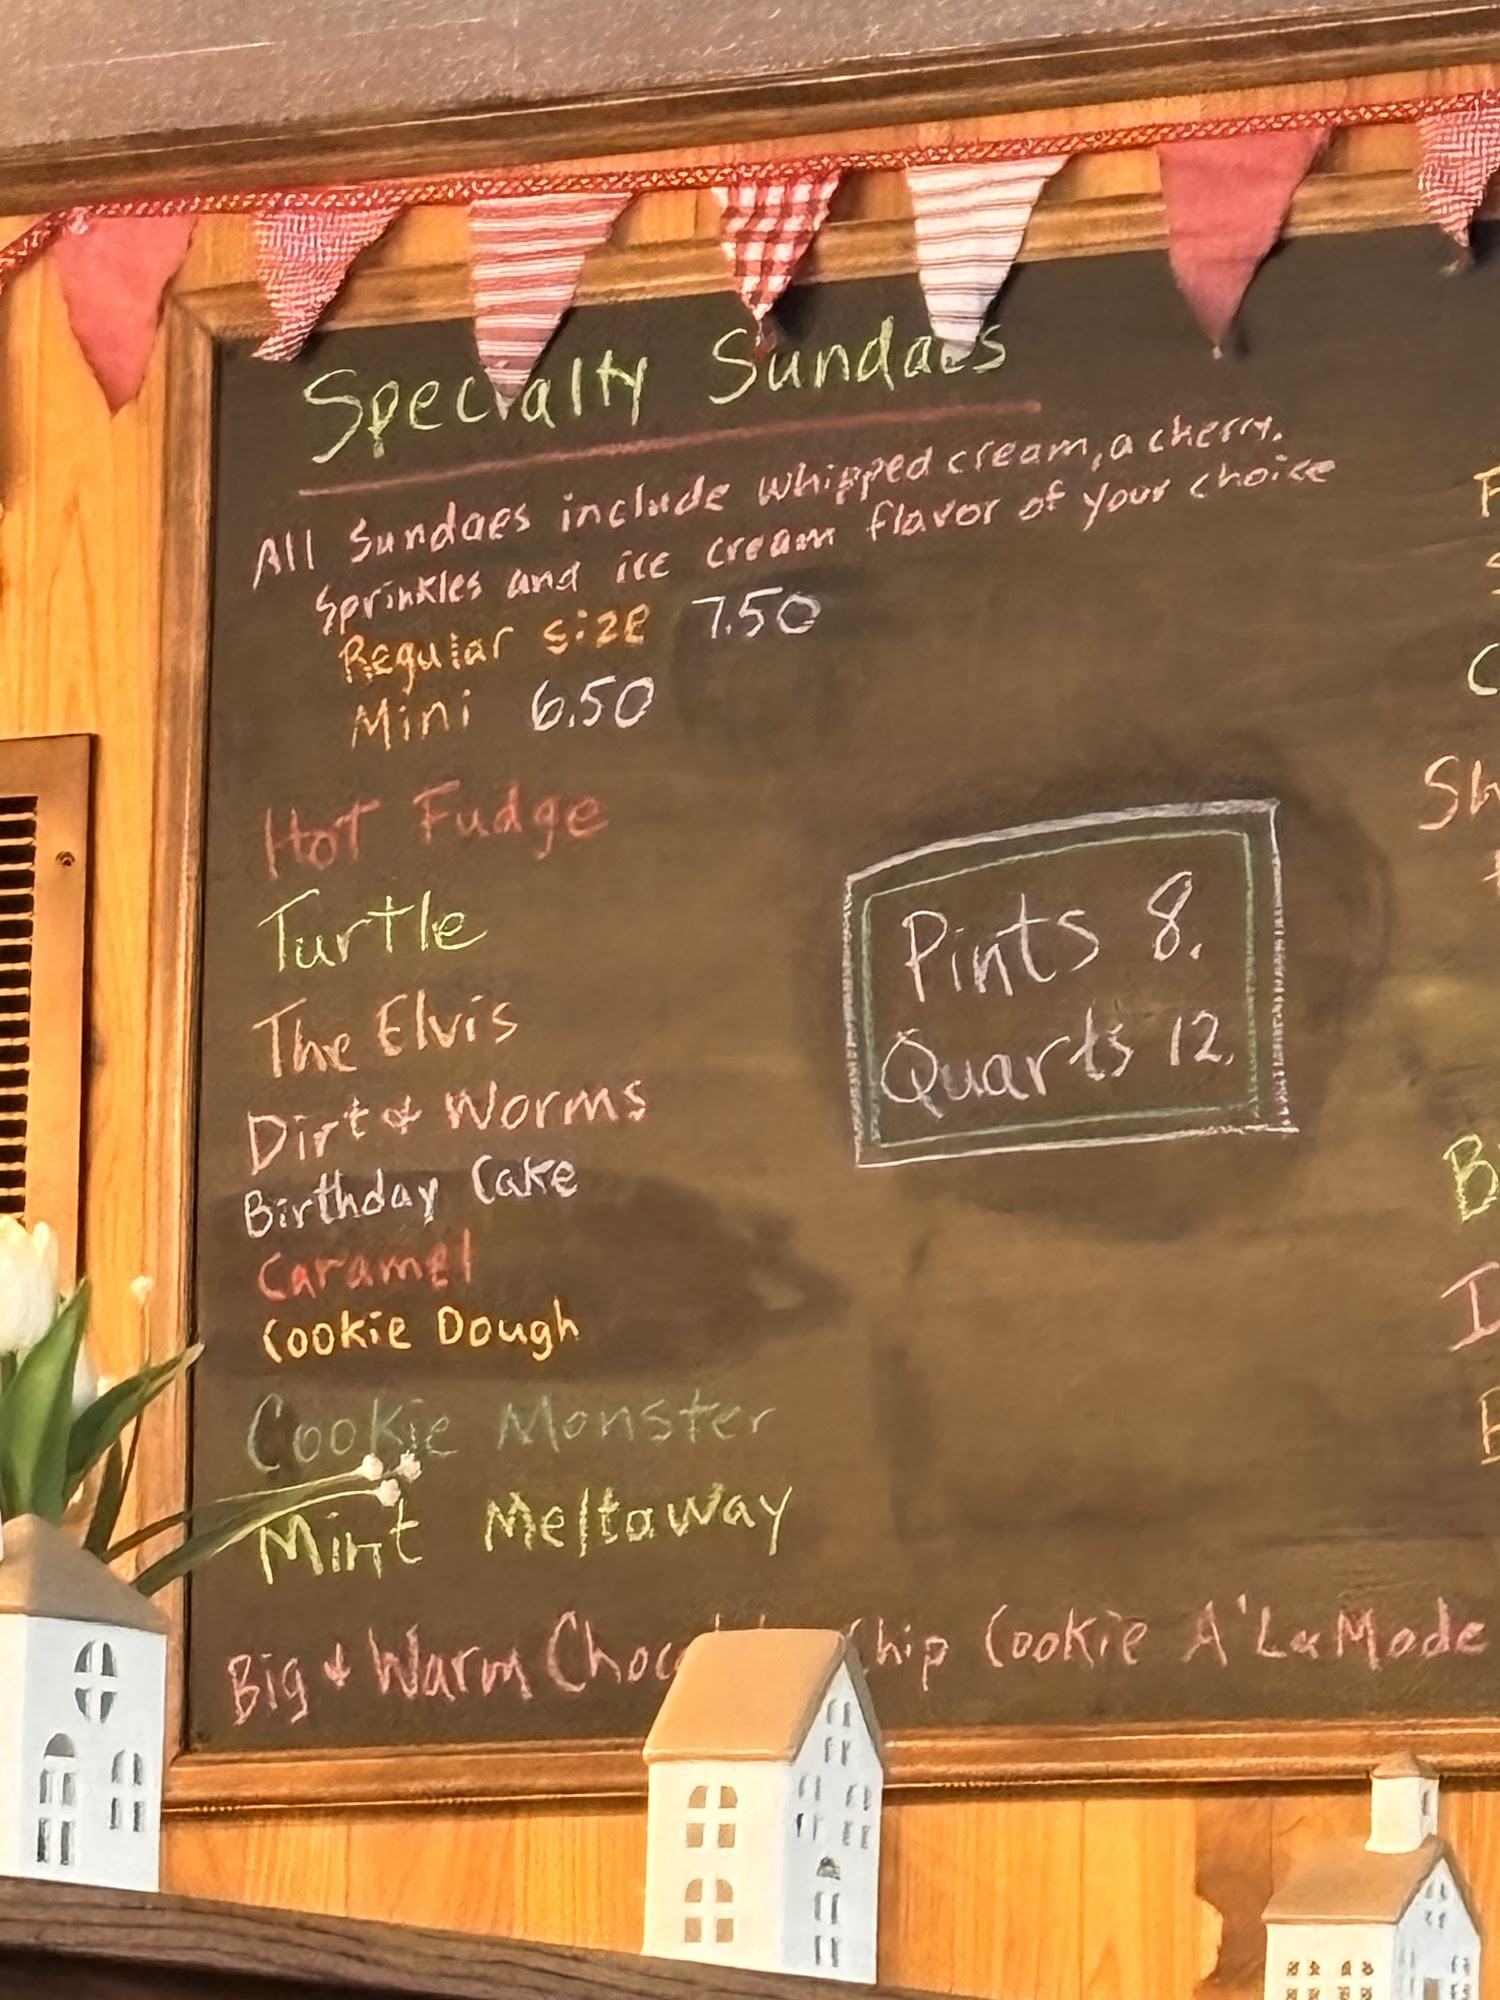 Specialty Sundaes
All Sundaes include whipped cream, a cherry,
Sprinkles and ice cream flavor of your choice
Regular size 7.50
Mini 6.50
Hot Fudge
Turtle
The Elvis
Dirt & Worms
Birthday Cake
Caramel
Cookie Dough
Cookie Monster
Mint Meltaway
Big & Warm Chip Cookie A'La Mode
Pints 8.
Quarts 12.